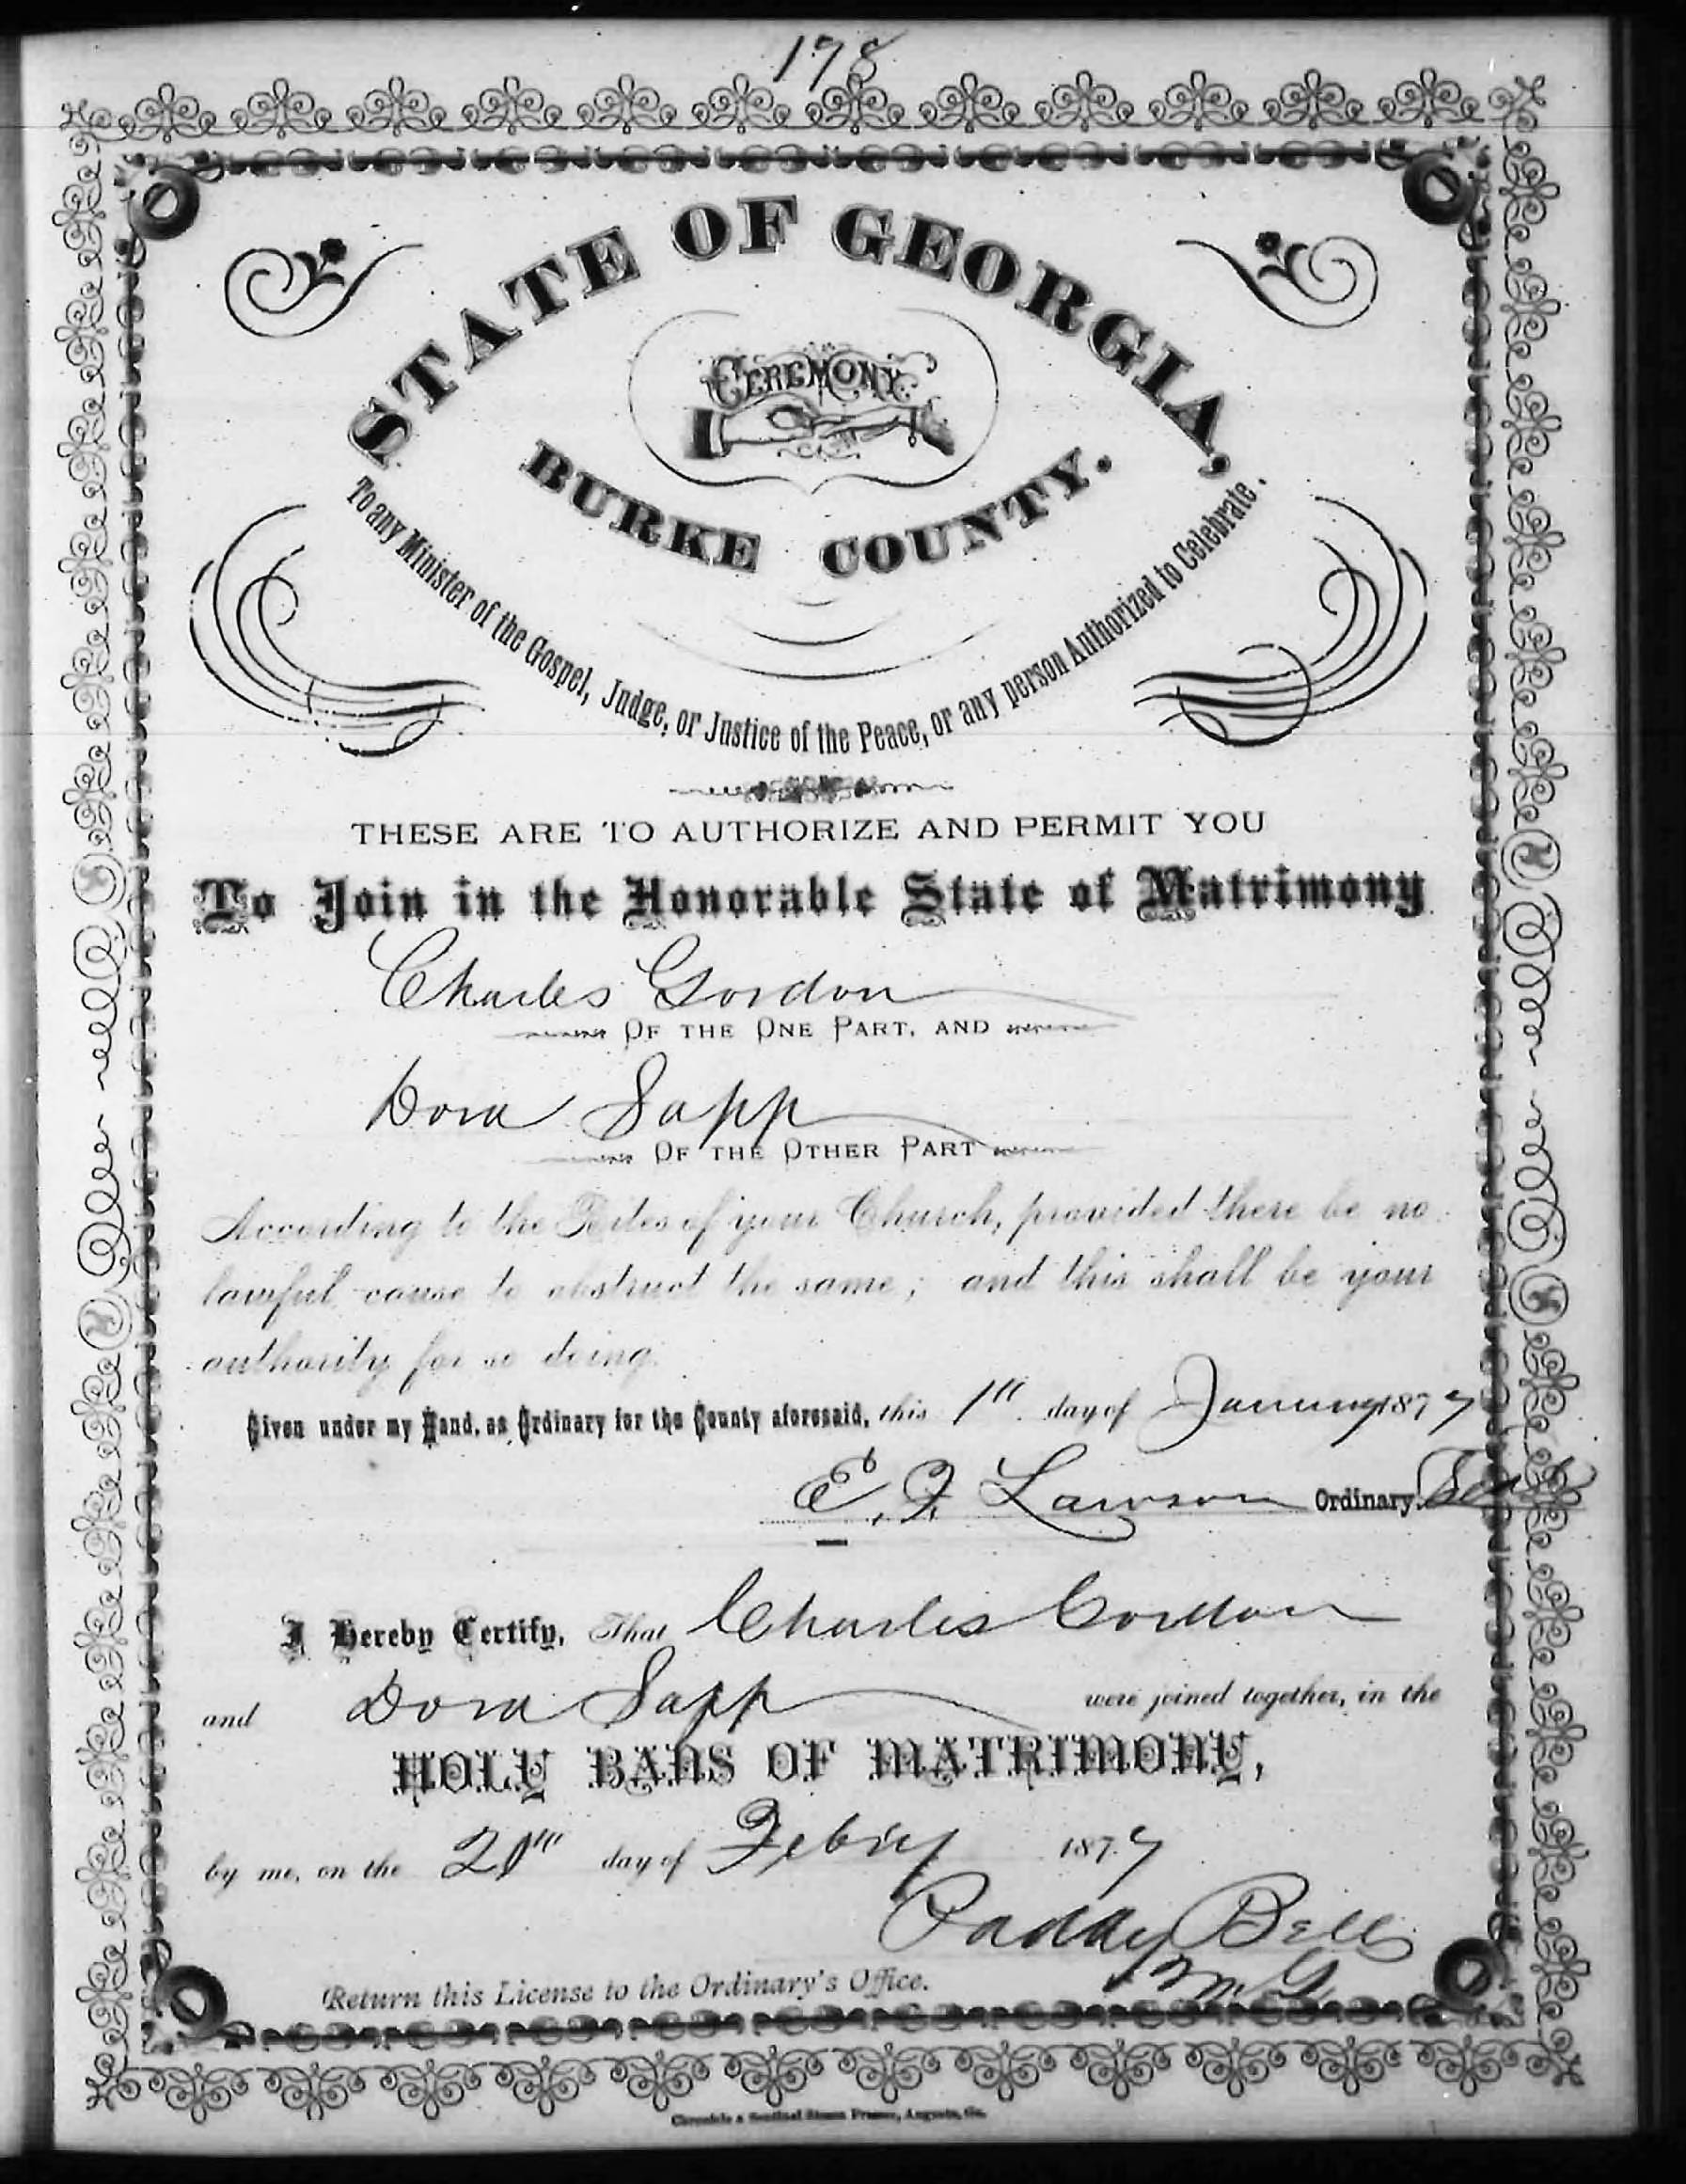 178
STATE OF GEORGIA,
CEREMONY.
BURKE COUNTY.
To any Minister of the Gospel, Judge, or Justice of the Peace, or any person Authorized to Celebrate.
THESE ARE TO AUTHORIZE AND PERMIT YOU
To Join in the Honorable State of Matrimony
Charles Gordon
OF THE ONE PART, AND
Dora Sapp
OF THE OTHER PART
According to the Rites of your Church, provided there be no
lawful cause to obstruct the same; and this shall be your
authority for so doing.
Given under my Hand, as Ordinary for the County aforesaid, this 1st day of January 1877
E. F. Lawson Ordinary.
I Hereby Certify, That Charles Gordon
and Dora Sapp were joined together, in the
HOLY BANS OF MATRIMONY,
by me, on the day of Febry 1877
Paddy Bell
M. G.
Return this License to the Ordinary's Office.
Chronicle & Sentinel Steam Presses, Augusta, Ga.